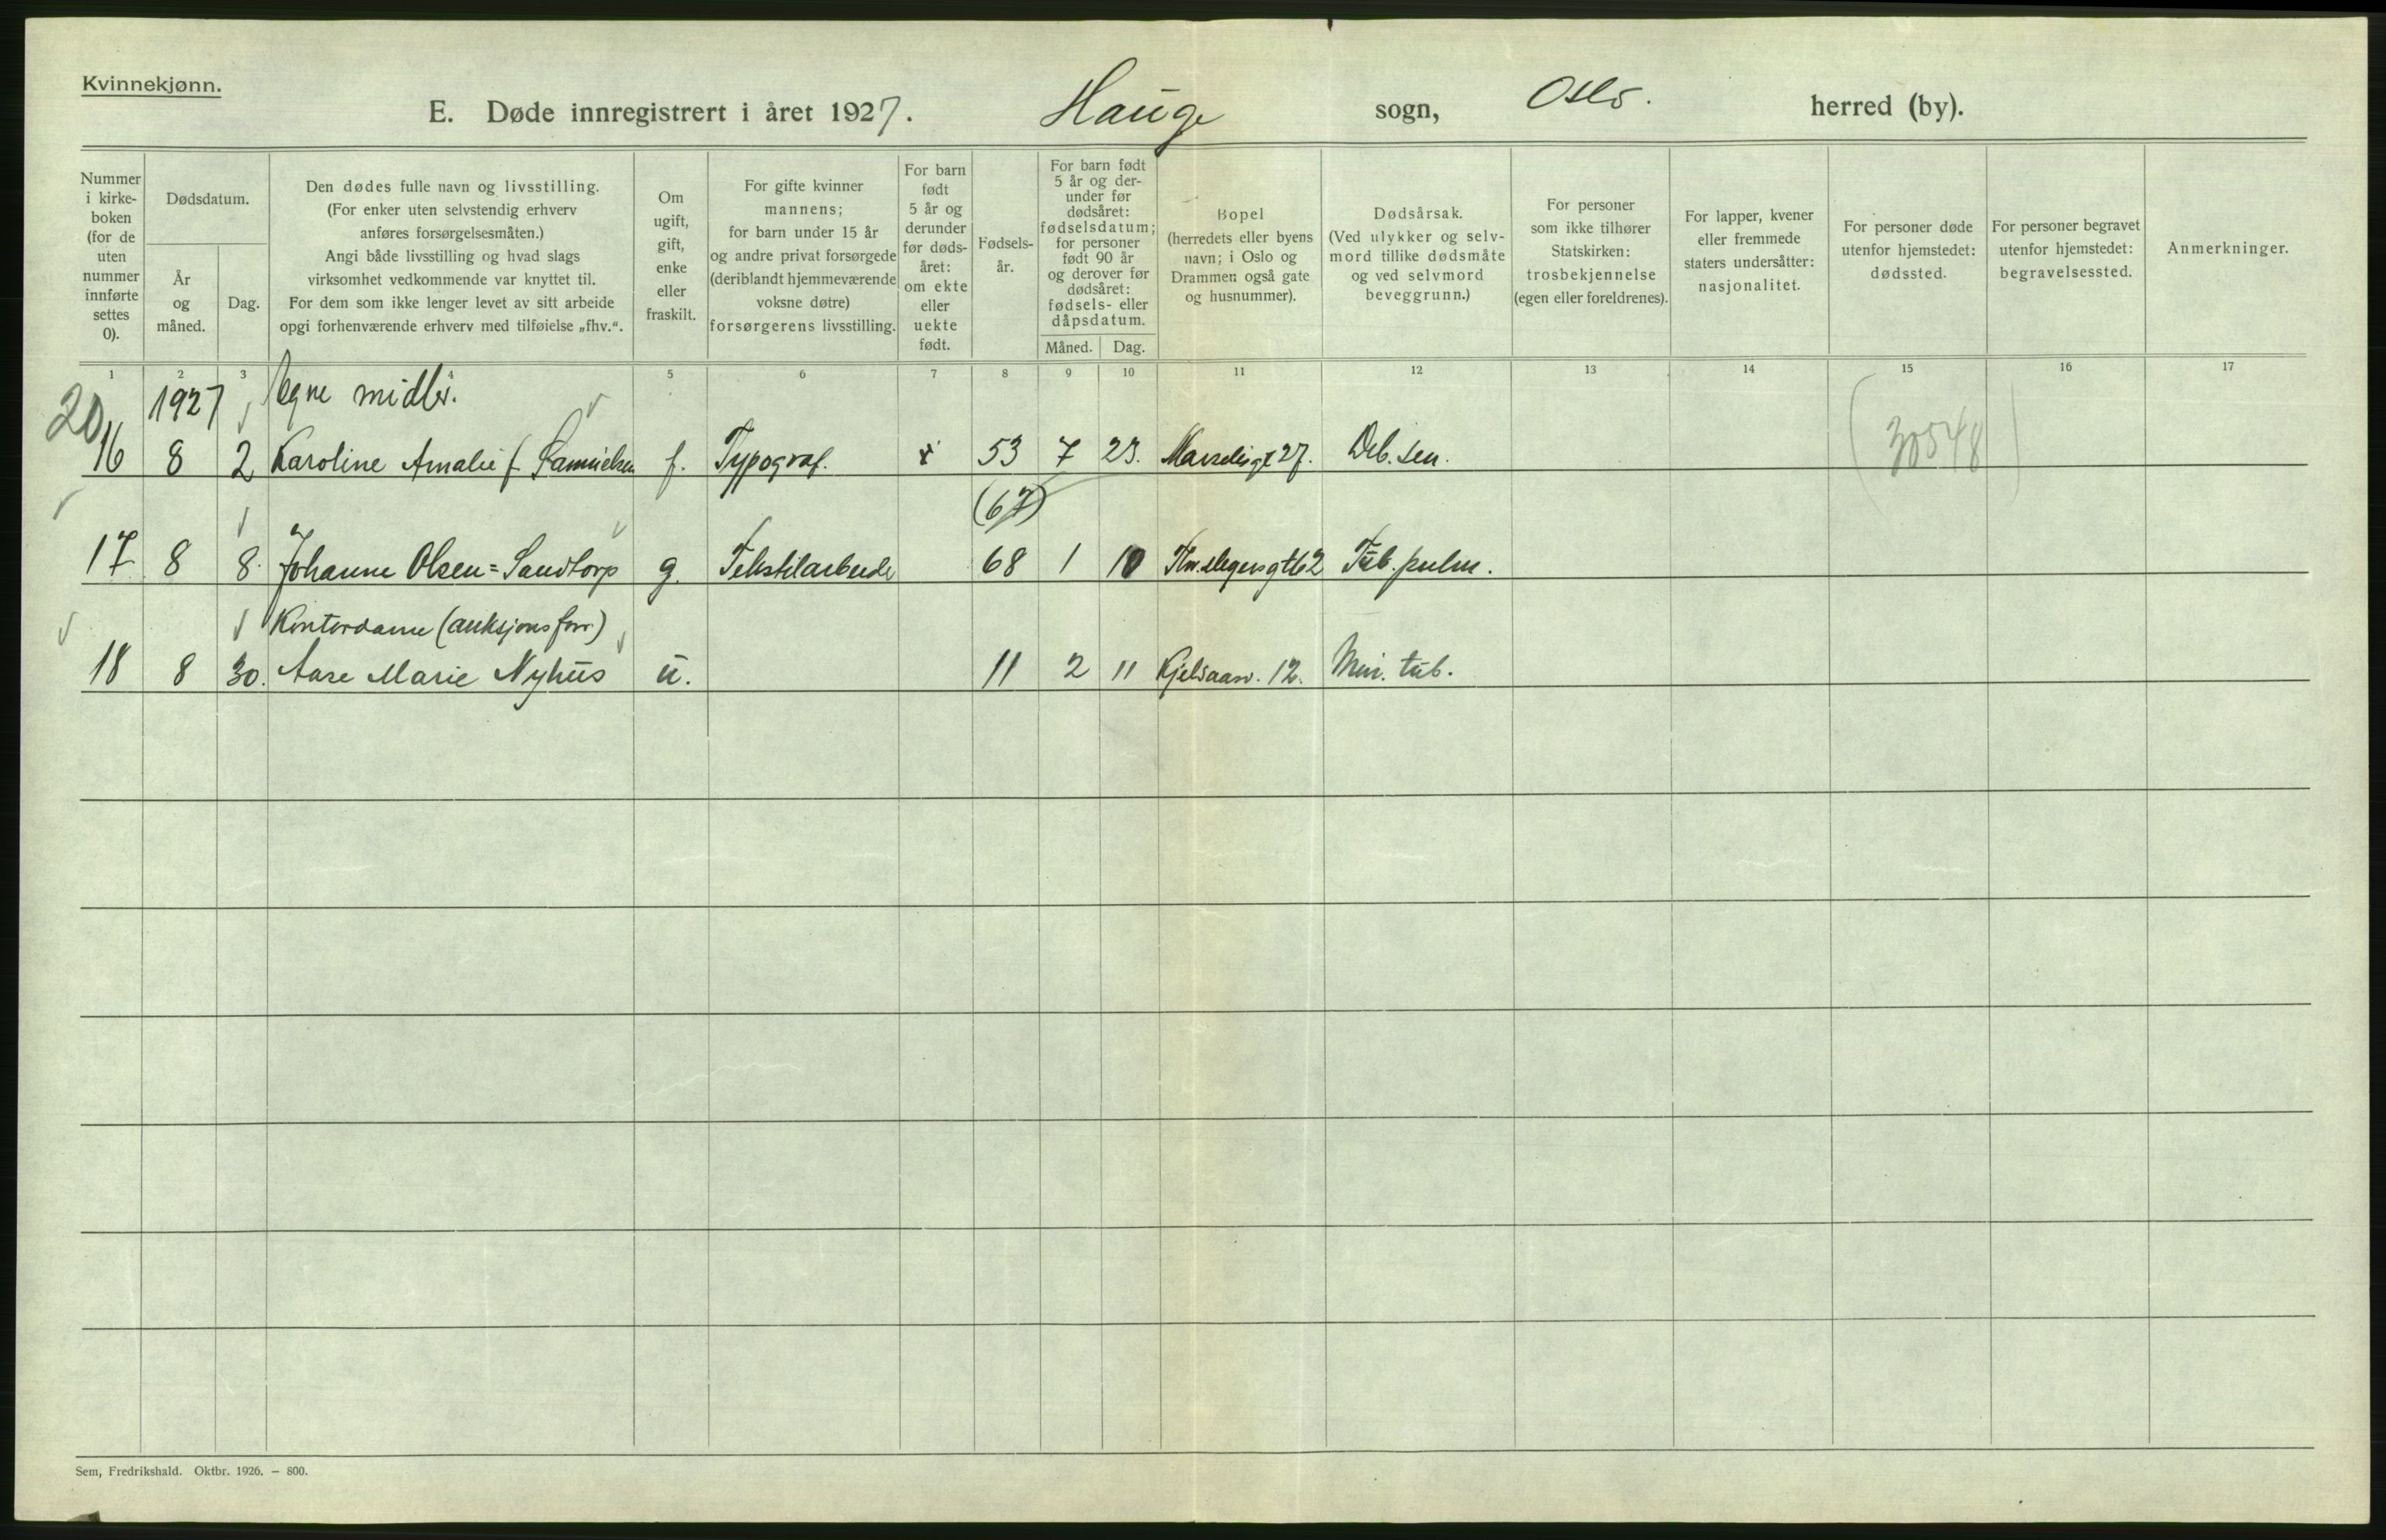 Kvinnekjønn.
E. Døde innregistrert i året 1927. Hauge sogn, Oslo. herred (by).
Nummer i kirke- boken (for de uten nummer innførte settes 0).
Dødsdatum.
År og måned.
Dag.
Den dødes fulle navn og livsstilling.
(For enker uten selvstendig erhverv
anføres forsørgelsesmåten.)
Angi både livsstilling og hvad slags
virksomhet vedkommende var knyttet til.
For dem som ikke lenger levet av sitt arbeide
opgi forhenværende erhverv med tilføielse „fhv.“.
Om ugift, gift, enke eller fraskilt.
For gifte kvinner
mannens;
for barn under 15 år
og andre privat forsørgede
(deriblandt hjemmeværende
voksne døtre)
forsørgerens livsstilling.
For barn født 5 år og derunder før døds- året: om ekte eller uekte født.
Fødsels- år.
For barn født
5 år og der-
under før
dødsåret:
fødselsdatum;
for personer
født 90 år
og derover før
dødsåret:
fødsels- eller
dåpsdatum.
Måned. Dag.
Bopel
(herredets eller byens
navn; i Oslo og
Drammen også gate
og husnummer).
Dødsårsak.
(Ved ulykker og selv-
mord tillike dødsmåte
og ved selvmord
beveggrunn.)
For personer
som ikke tilhører
Statskirken:
trosbekjennelse
(egen eller foreldrenes).
For lapper, kvener
eller fremmede
staters undersåtter:
nasjonalitet.
For personer døde
utenfor hjemstedet:
dødssted.
For personer begravet
utenfor hjemstedet:
begravelsessted.
Anmerkninger.
1 2 3 4 5 6 7 8 9 10 11 12 13 14 15 16 17
20 1927 Egne midler.
16 8 2 Karoline Amalie f. Samuelsen f. Typograf. 53 7 23. 27. Deb. sen. (30548)
(67)
17 8 8. Johanne Olsen=Sandtorp g. Tekstilarbeide 68 1 10 Tub. pulm.
Kontordame (auksjonsforr)
18 8 30. Aase Marie Nyhus u. 11 2 11 Kjelsaasv. 12. Min. tub.
Sem, Fredrikshald. Oktbr. 1926. — 800.